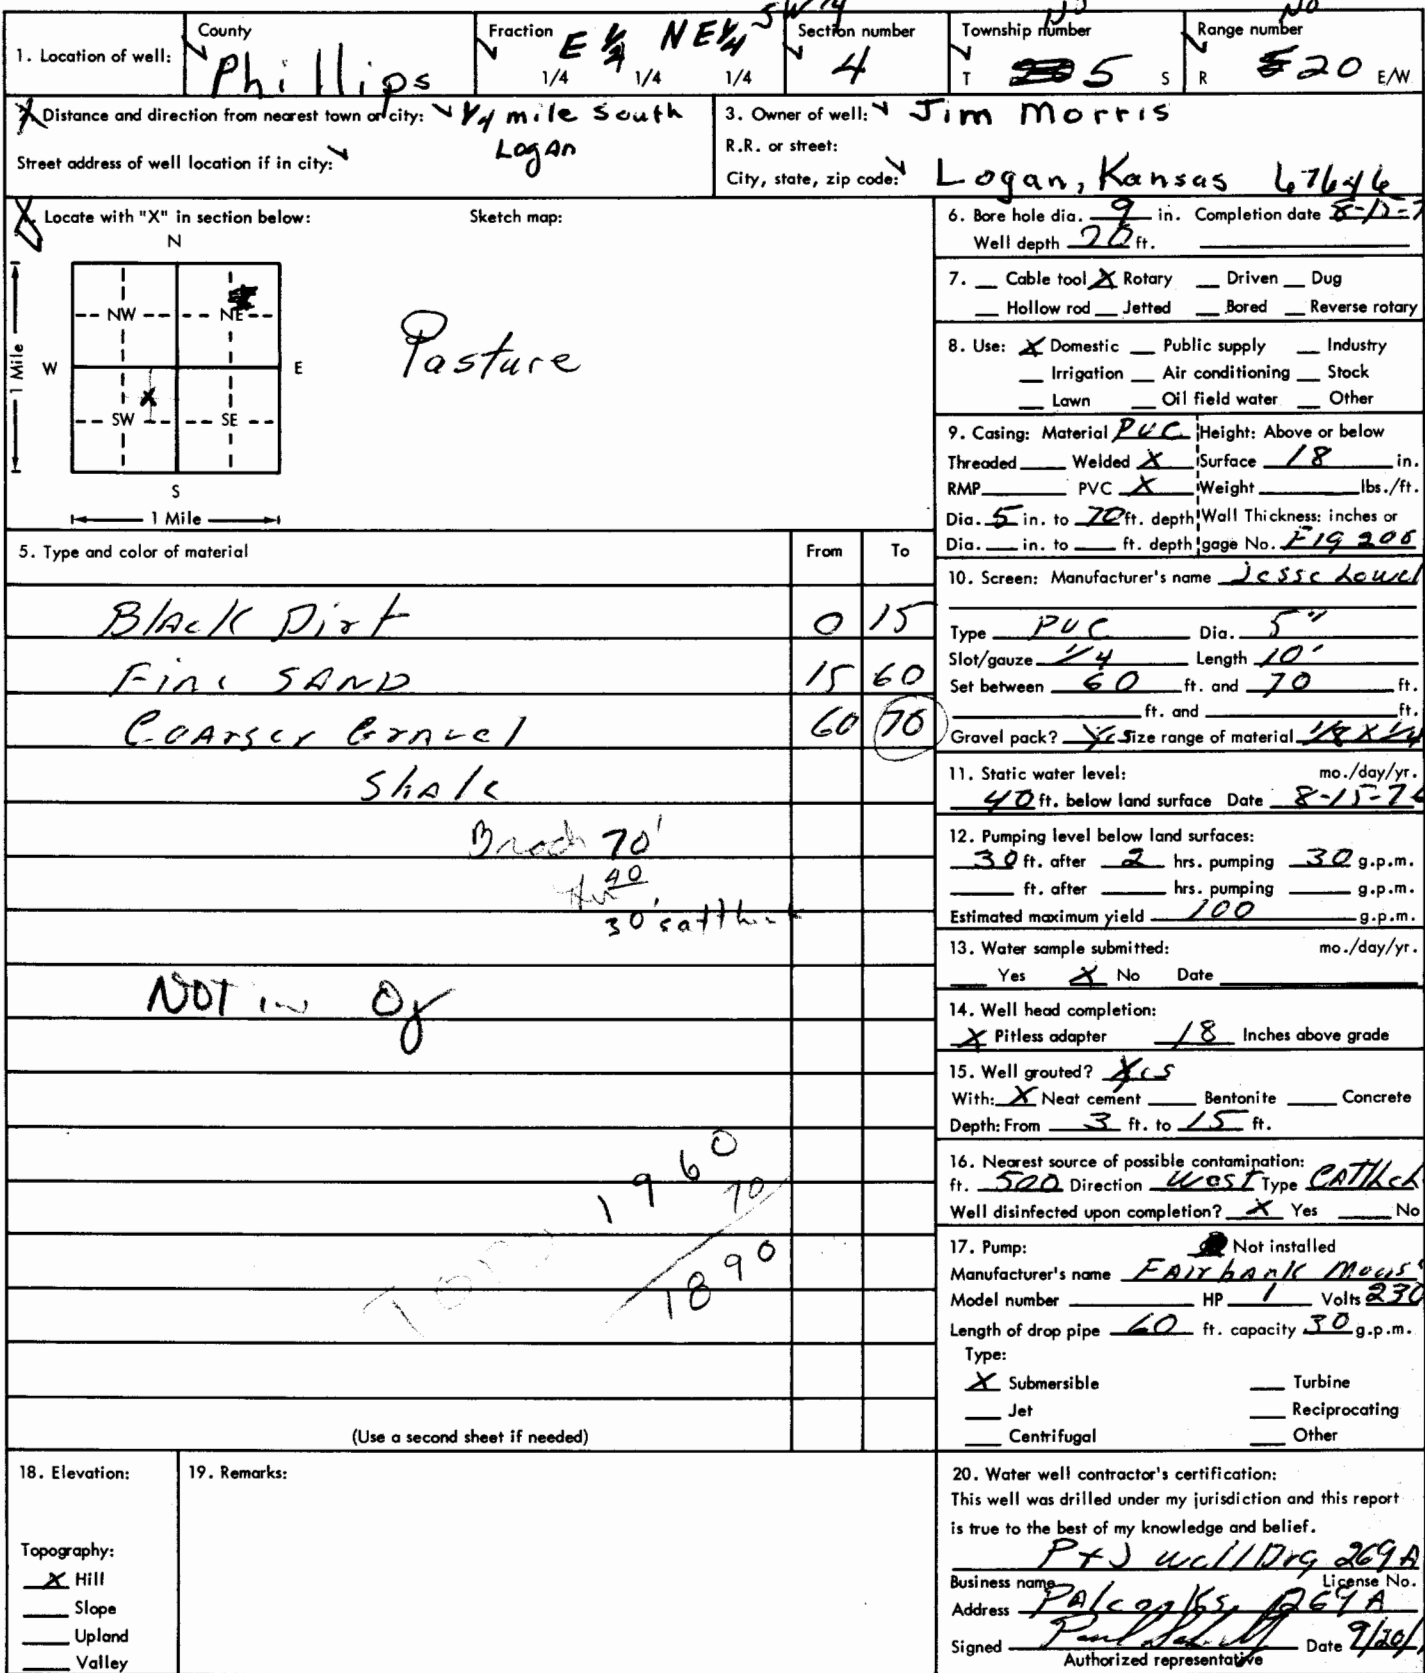 SW 1/4 No No
1. Location of well: County Phillips Fraction E ½ NE¼ 1/4 1/4 1/4 Section number 4 Township number T 5 S Range number R 20 E/W
Distance and direction from nearest town or city: 1/4 mile South
Logan
Street address of well location if in city:
3. Owner of well: Jim Morris
R.R. or street:
City, state, zip code: Logan, Kansas 67646
Locate with "X" in section below: Sketch map:
N
NW NE
W E
X
SW SE
S
1 Mile
1 Mile
Pasture
6. Bore hole dia. 9 in. Completion date 8-15-7
Well depth 70 ft.
7. Cable tool X Rotary Driven Dug
Hollow rod Jetted Bored Reverse rotary
8. Use: X Domestic Public supply Industry
Irrigation Air conditioning Stock
Lawn Oil field water Other
9. Casing: Material PVC Height: Above or below
Threaded Welded X Surface 18 in.
RMP PVC X Weight lbs./ft.
Dia. 5 in. to 70 ft. depth Wall Thickness: inches or
Dia. in. to ft. depth gage No.
5. Type and color of material From To
Black Dirt 0 15
Fine SAND 15 60
Coarser Gravel 60 70
Shale
70'
40
30'
NOT in Og
1960
70
1890
TOPO
(Use a second sheet if needed)
10. Screen: Manufacturer's name Jesse Lowel
Type PVC Dia. 5"
Slot/gauze 1/4 Length 10'
Set between 60 ft. and 70 ft.
ft. and ft.
Gravel pack? Yes Size range of material 1/8 X 1/4
11. Static water level: mo./day/yr.
40 ft. below land surface Date 8-15-76
12. Pumping level below land surfaces:
30 ft. after 2 hrs. pumping 30 g.p.m.
ft. after hrs. pumping g.p.m.
Estimated maximum yield 100 g.p.m.
13. Water sample submitted: mo./day/yr.
Yes X No Date
14. Well head completion:
X Pitless adapter 18 Inches above grade
15. Well grouted? Yes
With: X Neat cement Bentonite Concrete
Depth: From 3 ft. to 15 ft.
16. Nearest source of possible contamination:
ft. 500 Direction West Type
Well disinfected upon completion? X Yes No
17. Pump: Not installed
Manufacturer's name Fairbank
Model number HP 1 Volts 230
Length of drop pipe 60 ft. capacity 30 g.p.m.
Type:
X Submersible Turbine
Jet Reciprocating
Centrifugal Other
18. Elevation:
Topography:
X Hill
Slope
Upland
Valley
19. Remarks:
20. Water well contractor's certification:
This well was drilled under my jurisdiction and this report
is true to the best of my knowledge and belief.
P+J well Drg 269A
Business name License No.
Address Palco, Ks. 269A
Signed Date 9/20/
Authorized representative